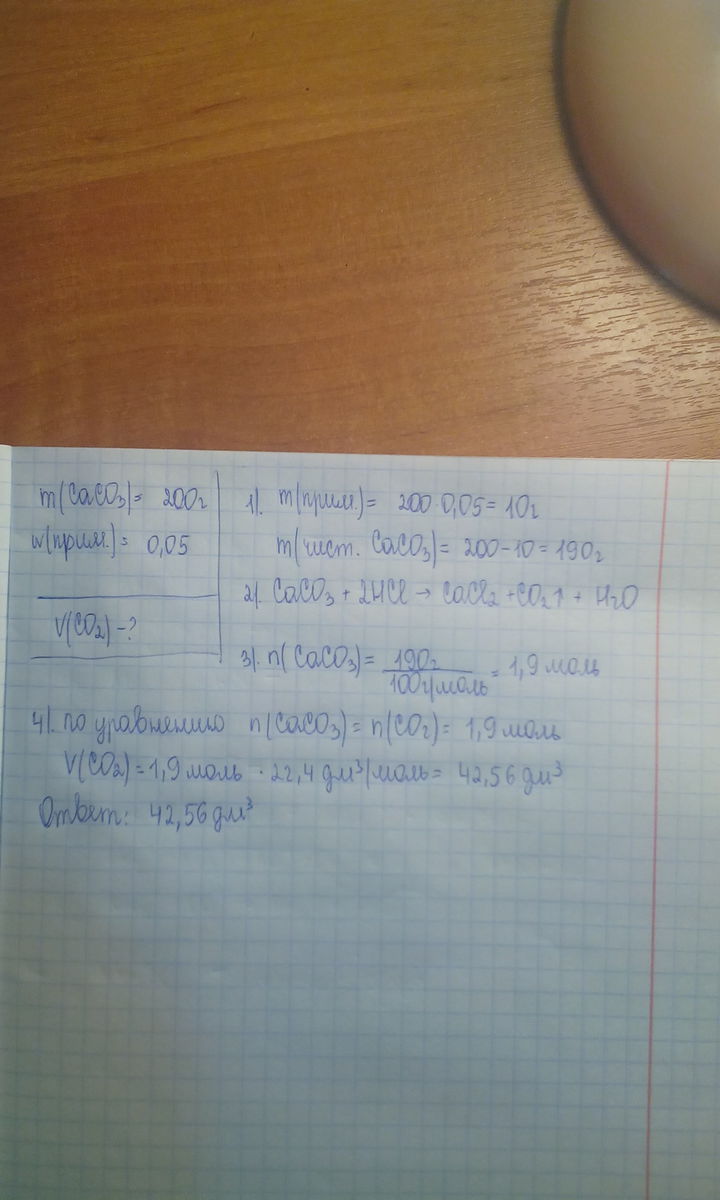 m(CaCO3)= 200г
w(прим.)= 0,05
V(CO2)-?
1). m(прим.)= 200·0,05= 10г
m(чист. CaCO3)= 200-10=190г
2). CaCO3 + 2HCl → CaCl2 +CO2↑ + H2O
3). n(CaCO3)= 190г/100г/моль = 1,9 моль
4). по уравнению n(CaCO3)= n(CO2)= 1,9 моль
V(CO2)=1,9 моль · 22,4 дм³/моль= 42,56 дм³
Ответ: 42,56 дм³